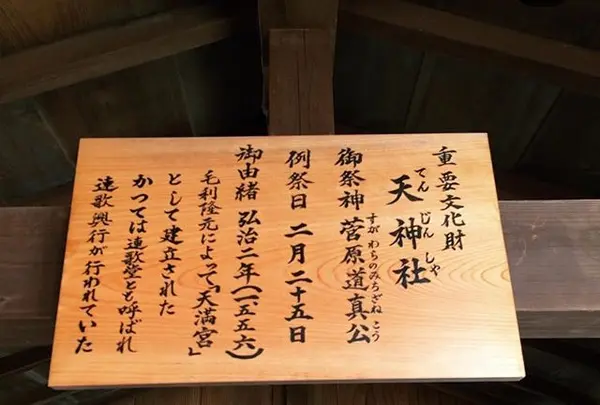 重要文化財
天神社
てんじんしゃ
御祭神 菅原道真公
すがわらのみちざねこう
例祭日 二月二十五日
御由緒 弘治二年(一、五五六)
毛利隆元によって「天満宮」
として建立された
かつては連歌堂とも呼ばれ
連歌興行が行われていた